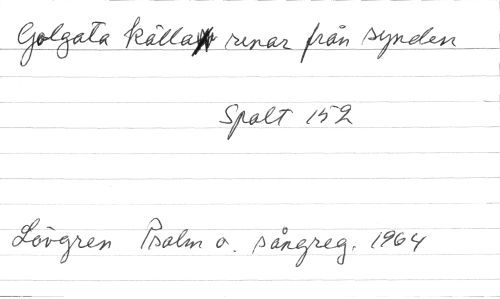 Golgata källa renar från synden
Spalt 152
Lövgren Psalm o. sångreg. 1964